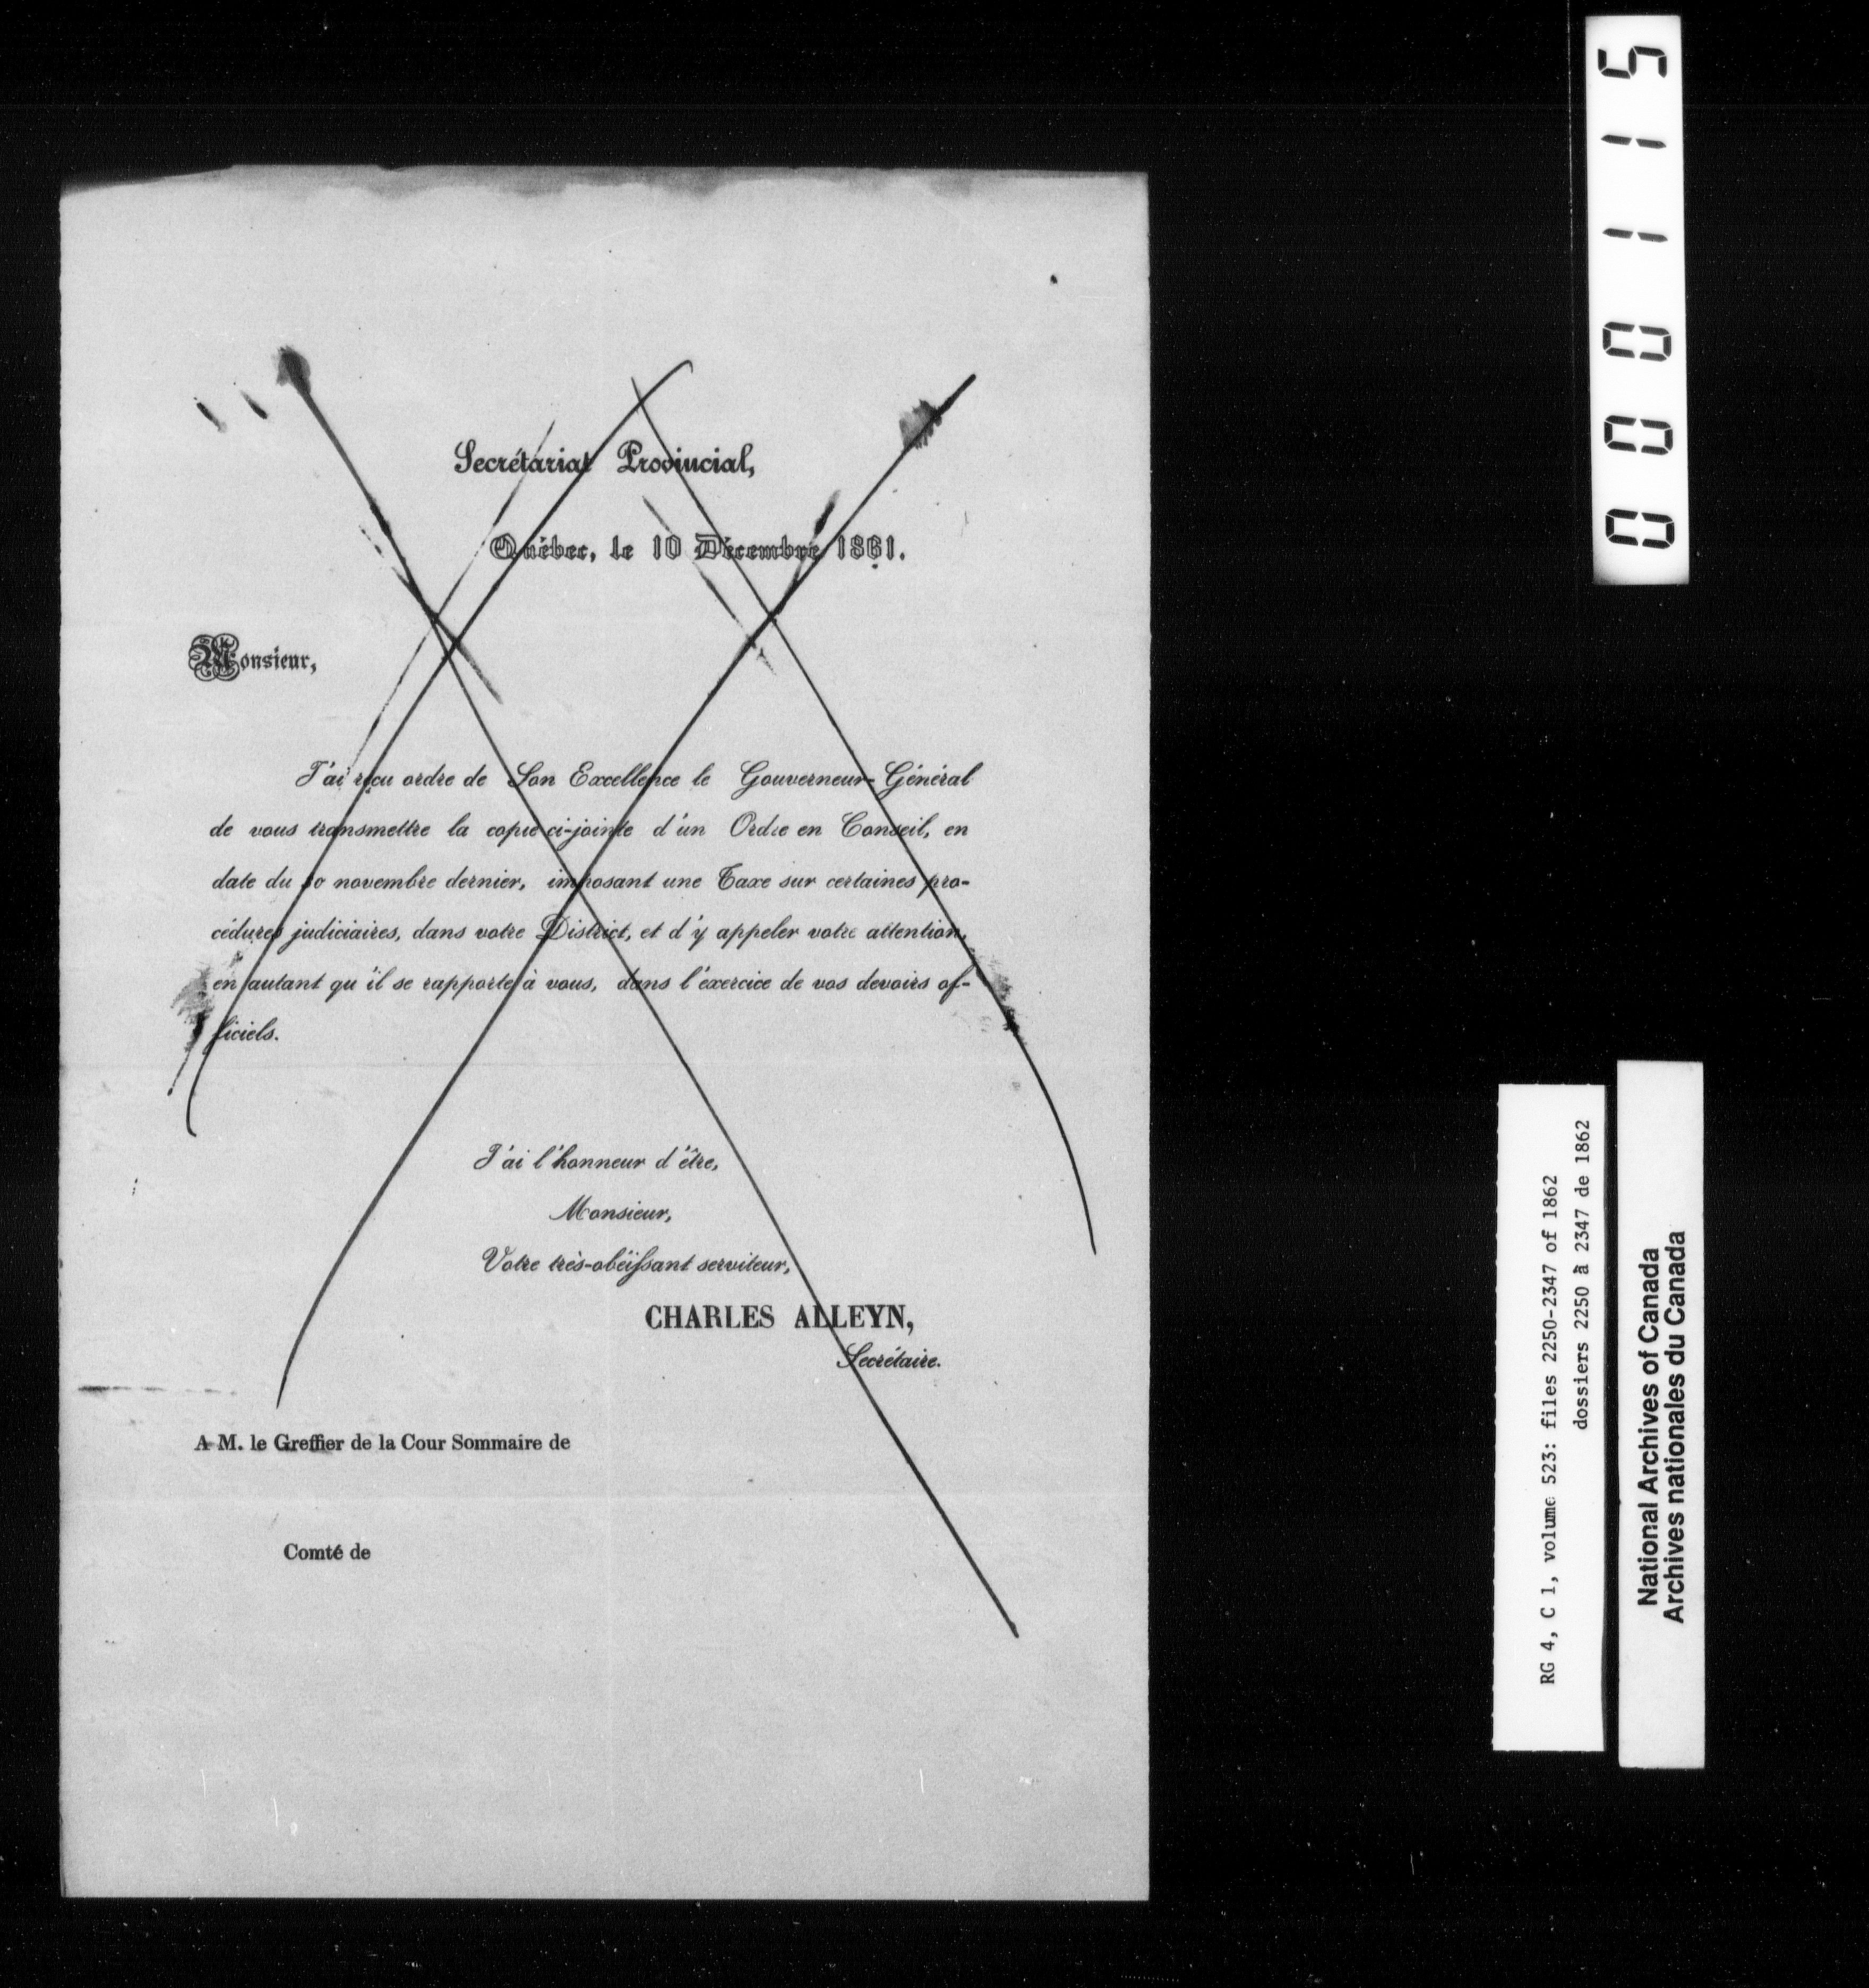 Secrétariat Provincial,
Québec, le 10 Décembre 1861.
Monsieur,
J'ai reçu ordre de Son Excellence le Gouverneur-Général
de vous transmettre la copie ci-jointe d'un Ordre en Conseil, en
date du 30 novembre dernier, imposant une Taxe sur certaines pro-
cédures judiciaires, dans votre District, et d'y appeler votre attention,
en autant qu'il se rapporte à vous, dans l'exercice de vos devoirs of-
ficiels.
J'ai l'honneur d'être,
Monsieur,
Votre très-obéissant serviteur,
CHARLES ALLEYN,
Secrétaire.
A M. le Greffier de la Cour Sommaire de
Comté de
000115
RG 4, C 1, volume 523: files 2250-2347 of 1862
dossiers 2250 à 2347 de 1862
National Archives of Canada
Archives nationales du Canada